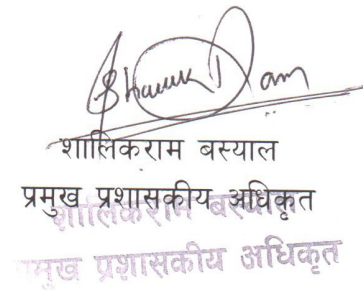 शालिकराम बस्याल
प्रमुख प्रशासकीय अधिकृत
शालिकराम बस्याल
प्रमुख प्रशासकीय अधिकृत